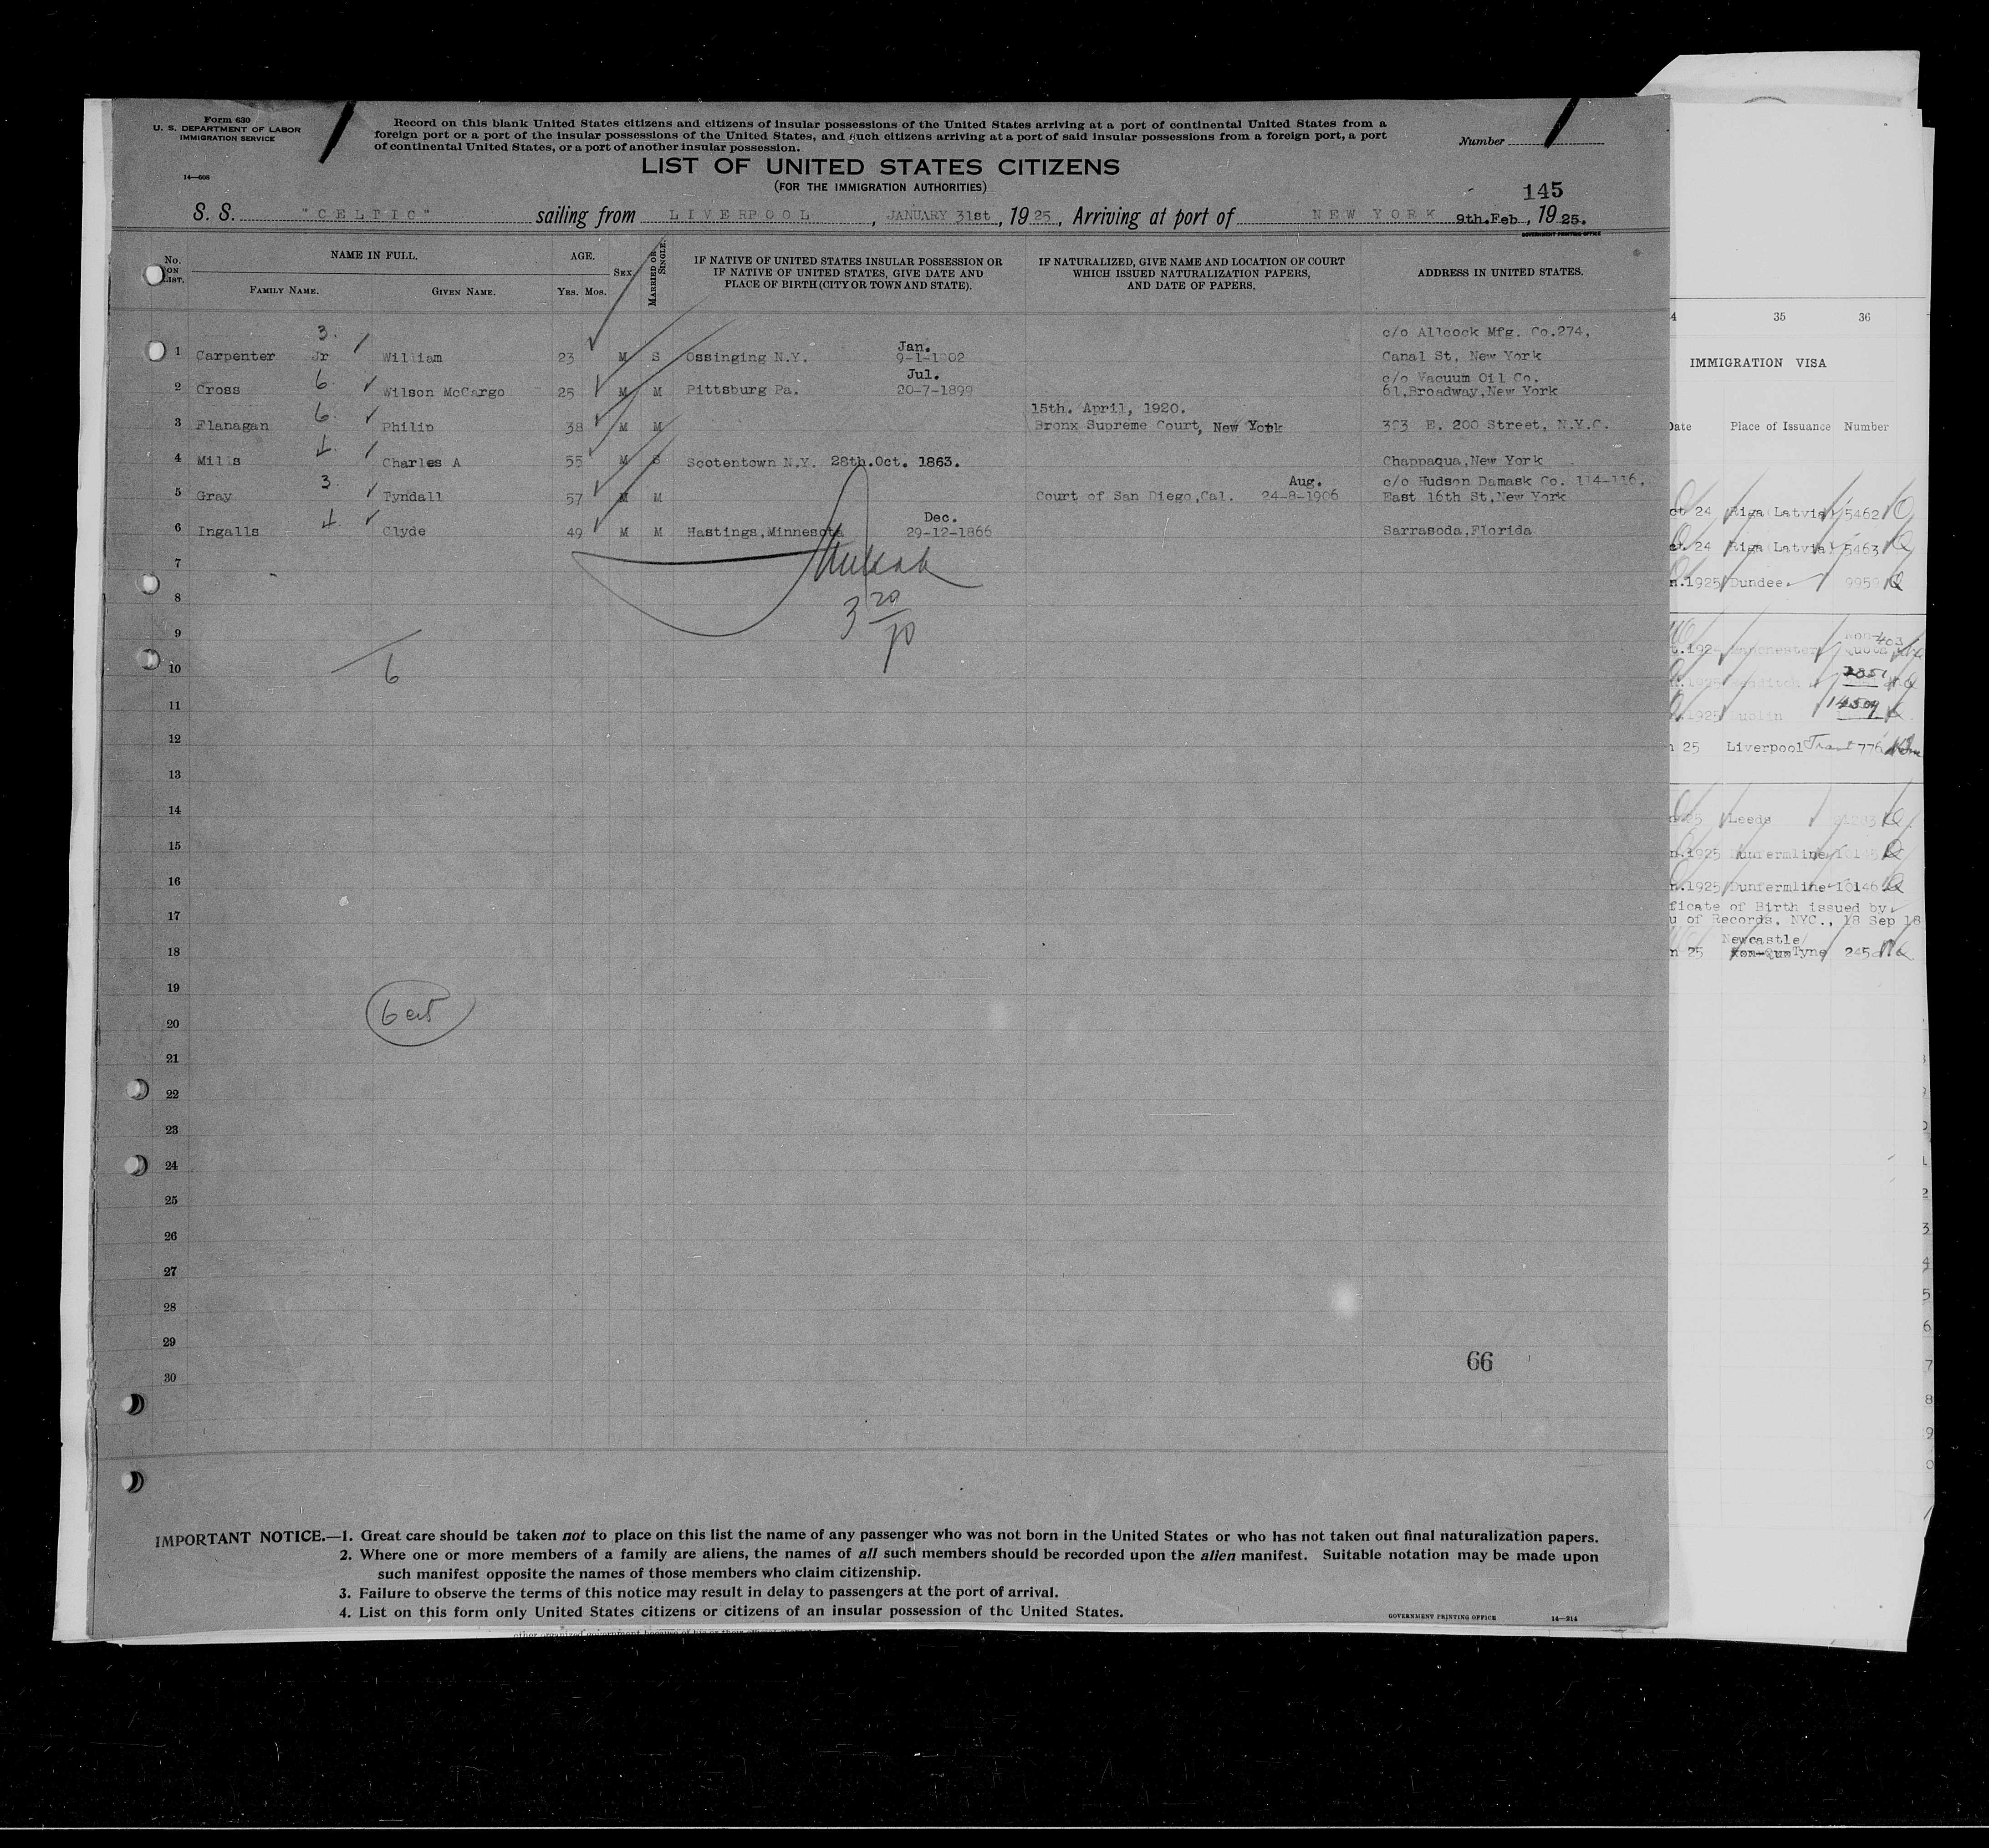 Form 630
U. S. DEPARTMENT OF LABOR
IMMIGRATION SERVICE
14—608
Record on this blank United States citizens and citizens of insular possessions of the United States arriving at a port of continental United States from a
foreign port or a port of the insular possessions of the United States, and such citizens arriving at a port of said insular possessions from a foreign port, a port
of continental United States, or a port of another insular possession.
Number
LIST OF UNITED STATES CITIZENS
(FOR THE IMMIGRATION AUTHORITIES)
145
S. S. "CELTIC" sailing from LIVERPOOL, JANUARY 31st, 1925, Arriving at port of NEW YORK 9th.Feb, 1925.
GOVERNMENT PRINTING OFFICE
No. ON LIST.
NAME IN FULL.
FAMILY NAME. GIVEN NAME.
AGE.
YRS. MOS.
SEX
MARRIED OR SINGLE.
IF NATIVE OF UNITED STATES INSULAR POSSESSION OR
IF NATIVE OF UNITED STATES, GIVE DATE AND
PLACE OF BIRTH (CITY OR TOWN AND STATE).
IF NATURALIZED, GIVE NAME AND LOCATION OF COURT
WHICH ISSUED NATURALIZATION PAPERS,
AND DATE OF PAPERS.
ADDRESS IN UNITED STATES.
3. Jan. c/o Allcock Mfg. Co.274,
1 Carpenter Jr William 23 M S Ossinging N.Y. 9-1-1902 Canal St, New York
6 Jul. c/o Vacuum Oil Co.
2 Cross Wilson McCargo 25 M M Pittsburg Pa. 20-7-1899 61,Broadway,New York
6. 15th. April, 1920.
3 Flanagan Philip 38 M M Bronx Supreme Court, New York 303 E. 200 Street, N.Y.C.
4 Mills Charles A 55 M S Scotentown N.Y. 28th.Oct. 1863. Chappaqua,New York
3. Aug. c/o Hudson Damask Co. 114-116,
5 Gray Tyndall 57 M M Court of San Diego,Cal. 24-8-1906 East 16th St,New York
Dec.
6 Ingalls Clyde 49 M M Hastings,Minnesota 29-12-1866 Sarrasoda,Florida
7
8
3 20/70
9
10
6
11
12
13
14
15
16
17
18
19
20
21
22
23
24
25
26
27
28
29
30
66
IMPORTANT NOTICE.—1. Great care should be taken not to place on this list the name of any passenger who was not born in the United States or who has not taken out final naturalization papers.
2. Where one or more members of a family are aliens, the names of all such members should be recorded upon the alien manifest. Suitable notation may be made upon
such manifest opposite the names of those members who claim citizenship.
3. Failure to observe the terms of this notice may result in delay to passengers at the port of arrival.
4. List on this form only United States citizens or citizens of an insular possession of the United States.
GOVERNMENT PRINTING OFFICE 14—314
4 35 36
IMMIGRATION VISA
Date Place of Issuance Number
24 Riga(Latvia) 5462
24 Riga(Latvia) 5463
1925 Dundee. 995
Dublin
25 Liverpool 776
25 Leeds
1925 Dunfermline
1925 Dunfermline 10146
ficate of Birth issued by
of Records, NYC., 18 Sep 18
Newcastle
25 Tyne 245